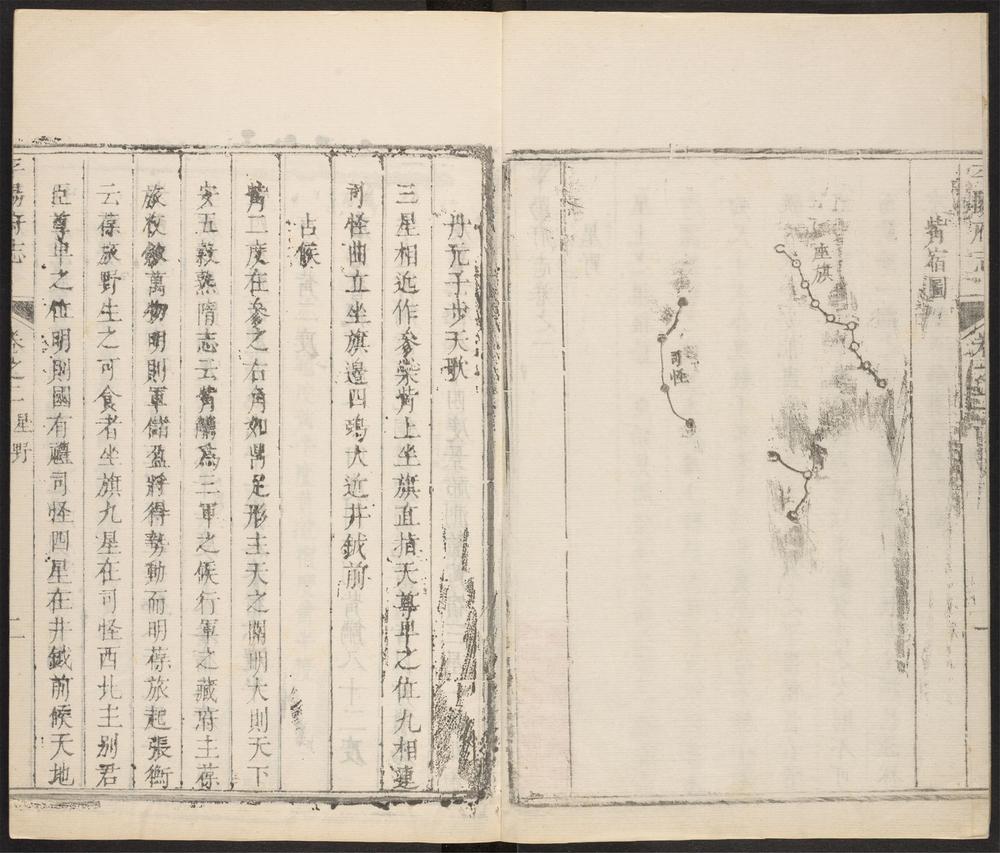 觜宿圖
座旗
司怪
丹元子步天歌
三星相近作參蘂觜上坐旗直指天尊卑之位九相連
司怪曲立坐旗邊四鴉大近井鉞前
占候
觜二度在參之右角如鼎足形主天之關明大則天下
安五穀熟隋志云觜觿爲三軍之候行軍之藏府主葆
旅收斂萬物明則軍儲盈將得勢動而明葆旅起張衡
云葆旅野生之可食者坐旗九星在司怪西北主别君
臣尊卑之位明則國有禮司怪四星在井鉞前候天地
平陽府志
卷之二 星野
二